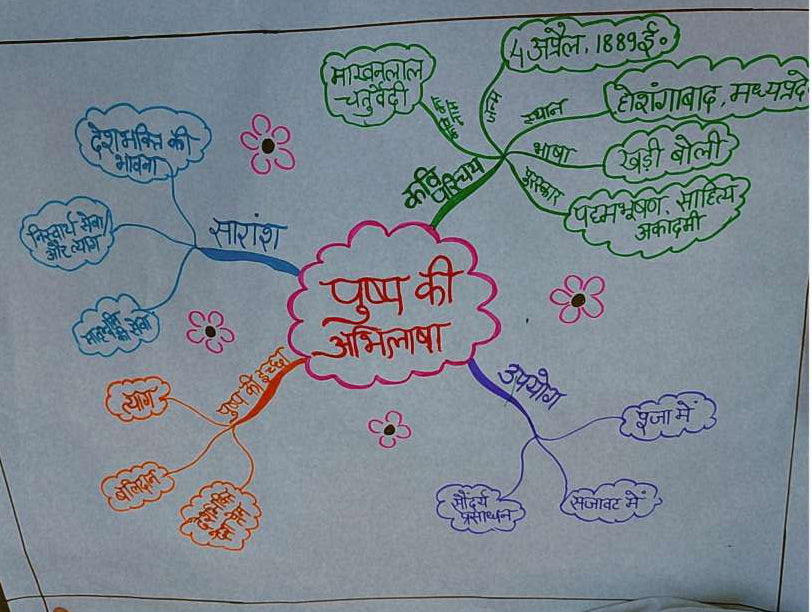 4 अप्रैल, 1889 ई०
माखनलाल
चतुर्वेदी
जन्म
स्थान
होशंगाबाद, मध्यप्रदे
भाषा
खड़ी बोली
पुरस्कार
पद्मभूषण, साहित्य
अकादमी
कवि
परिचय
देशभक्ति की
भावना
निस्वार्थ सेवा
और त्याग
सारांश
पुष्प की
अभिलाषा
पुष्प की इच्छा
त्याग
बलिदान
उपयोग
पूजा में
सजावट में
सौंदर्य
प्रसाधन